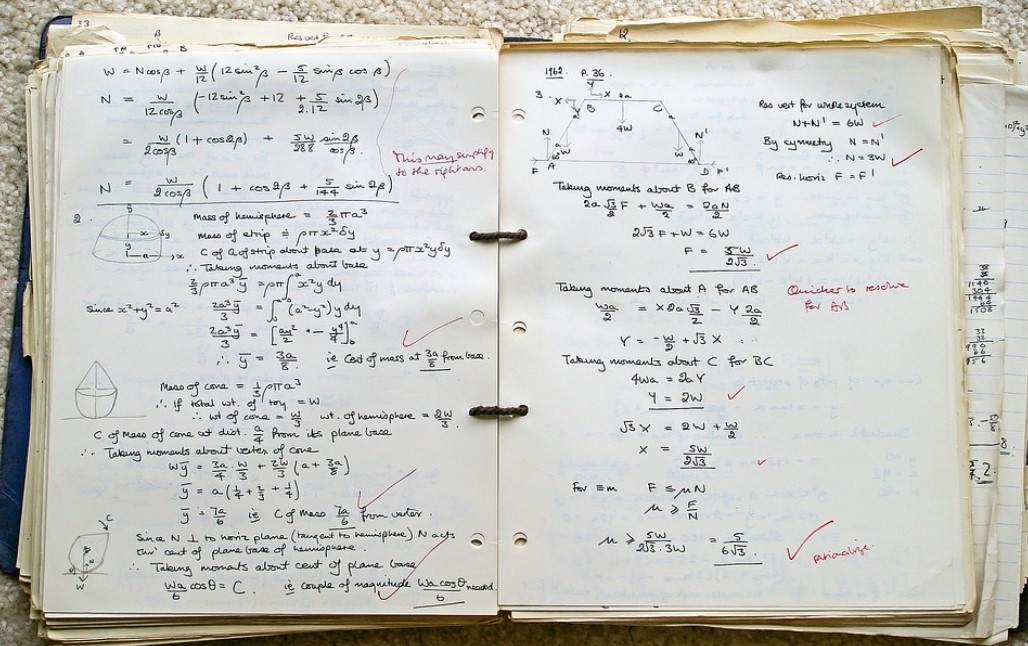 33
W = Ncosβ + W/12 (12 sin²β − 5/12 sinβ cosβ)
N = W/12cosβ (−12sin²β + 12 + 5/2.12 sin2β)
= W/2cosβ (1 + cos2β) + 5W/288 sin2β/cosβ.
This may simplify
to the right ans.
N = W/2cosβ (1 + cos2β + 5/144 sin2β)
2.
Mass of hemisphere = 2/3 πa³
Mass of strip = ρπx²δy
C of G of strip about base at y = ρπx²yδy
∴ Taking moments about base
2/3 ρπa³ȳ = ρπ∫₀ᵃ x²y dy
Since x²+y² = a²
2a³ȳ/3 = ∫₀ᵃ (a²−y²)y dy
2a³ȳ/3 = [ay²/2 − y⁴/4]₀ᵃ
∴ ȳ = 3a/8 ie Cent of mass at 3a/8 from base.
Mass of cone = 1/3 ρπa³
∴ If total wt. of toy = W
∴ wt of cone = W/3 wt. of hemisphere = 2W/3.
C of Mass of cone at dist. a/4 from its plane base
∴ Taking moments about vertex of cone
Wȳ = 3a/4 . W/3 + 2W/3 (a + 3a/8)
ȳ = a(1/4 + 2/3 + 1/4)
ȳ = 7a/6 ie C of Mass 7a/6 from vertex.
C
W
Since N ⊥ to horiz plane (tangent to hemisphere) N acts
thro' cent of plane base of hemisphere.
∴ Taking moments about cent of plane base
Wa/6 cosθ = C ie couple of magnitude Wa cosθ/6 needed.
12
1962. P. 36
3.
Y
X X 2a
B C
4W
N N'
W W
F A D F'
Res vert for whole system
N+N' = 6W
By symmetry N = N'
∴ N = 3W
Res. horiz F = F'
Taking moments about B for AB
2a √3/2 F + Wa/2 = 2aN/2
2√3 F + W = 6W
F = 5W/2√3
Taking moments about A for AB
Quicker to resolve
for AB
Wa/2 = X 2a √3/2 − Y 2a/2
Y = −W/2 + √3 X
Taking moments about C for BC
4Wa = 2aY
Y = 2W
√3 X = 2W + W/2
X = 5W/2√3
For ≡m F ≤ μN
μ ≥ F/N
μ ≥ 5W/2√3.3W = 5/6√3.
rationalize.